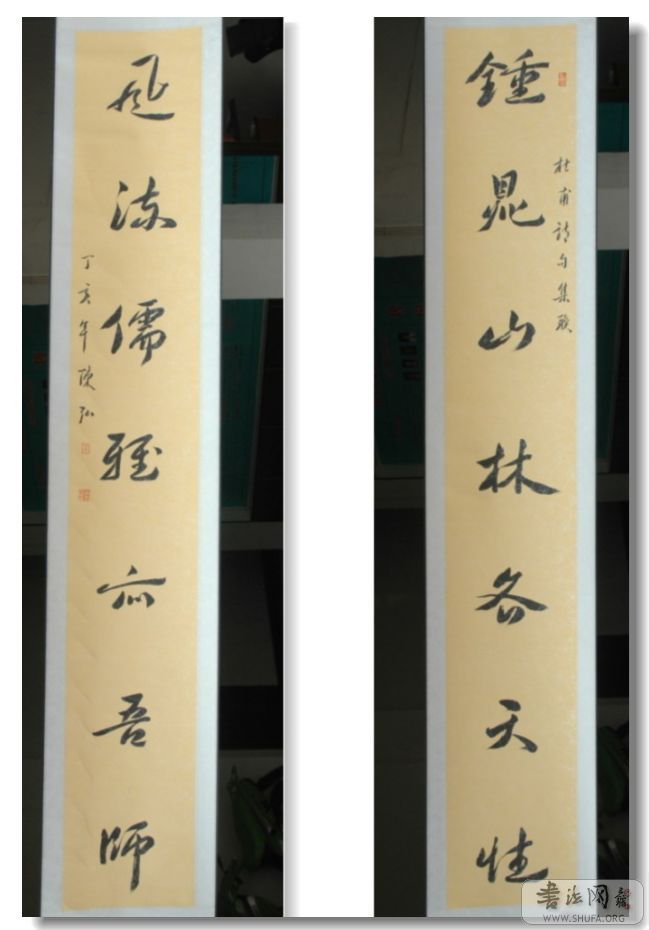 鍾鼎山林各天性
杜甫詩句集联
風流儒雅亦吾師
丁亥年
書法网
WWW.SHUFA.ORG